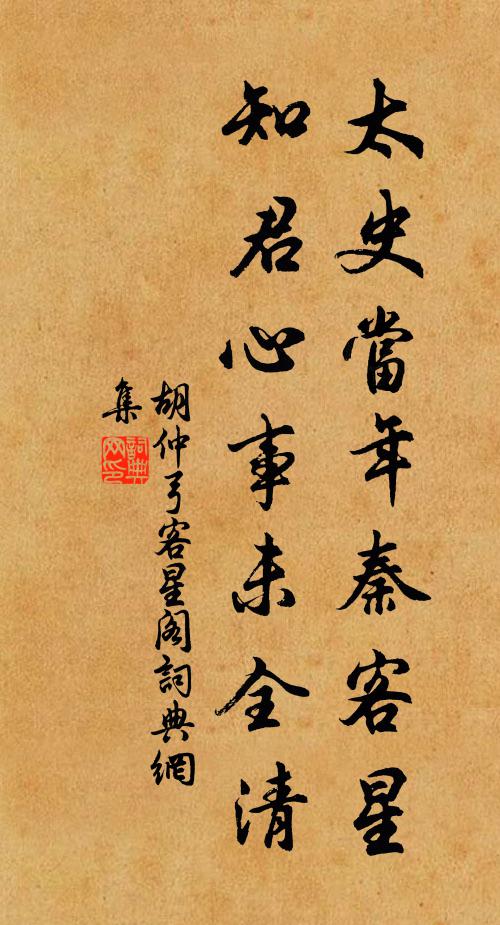 太史當年秦客星
知君心事未全清
胡仲弓客星阁詞典網
集
詞典網印